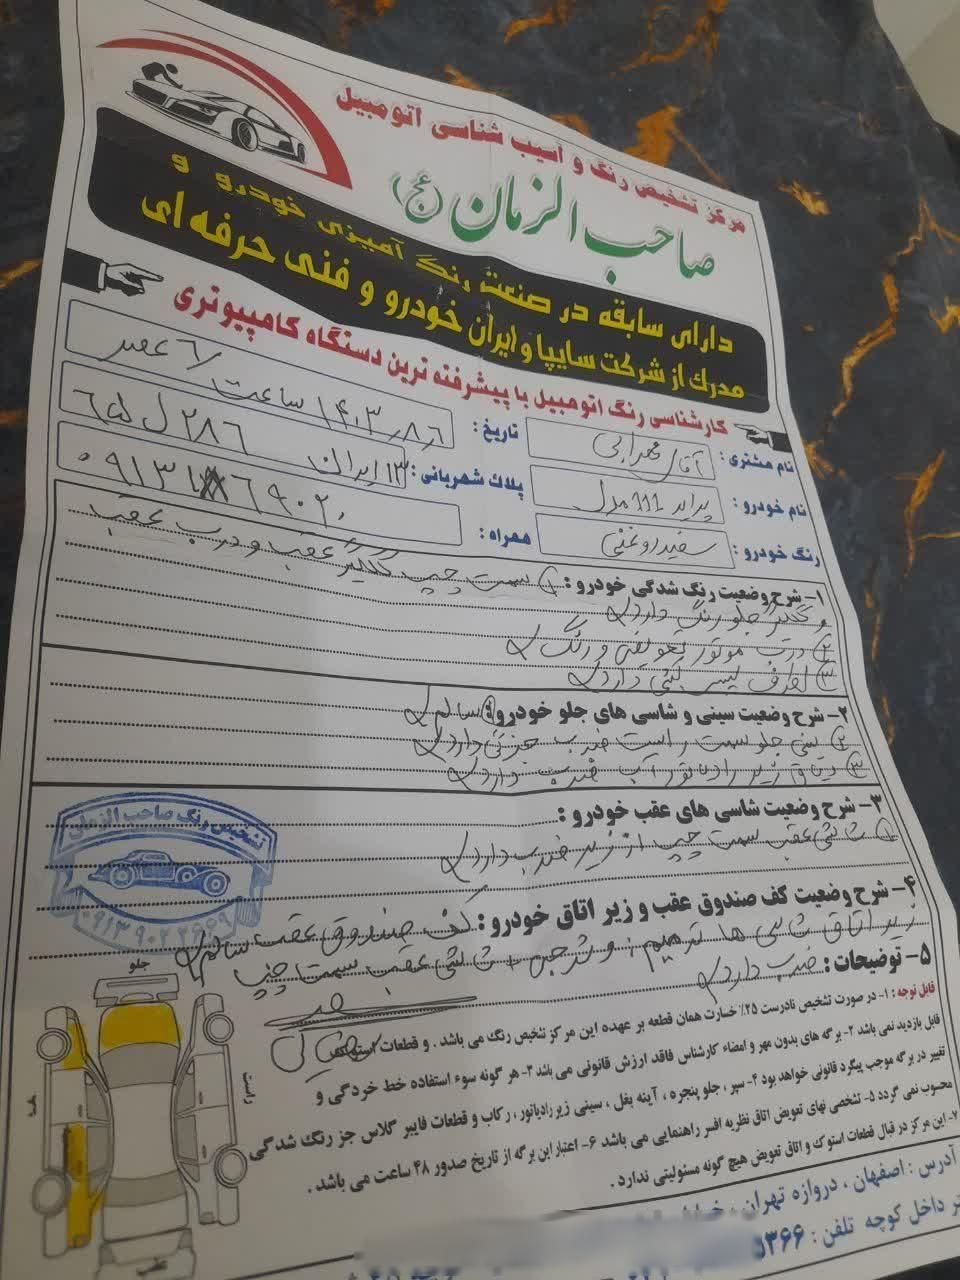 مرکز تشخیص رنگ و آسیب شناسی اتومبیل
صاحب الزمان (عج)
دارای سابقه در صنعت رنگ آمیزی خودرو و
مدرک از شرکت سایپا و ایران خودرو و فنی حرفه ای
کارشناسی رنگ اتومبیل با پیشرفته ترین دستگاه کامپیوتری
نام مشتری: آقای
تاریخ: ۱۴۰۳/۸/۶ ساعت ۶ عصر
نام خودرو: پراید ۱۱۱ مدل
پلاک شهربانی: ایران ۱۳ ۲۸۶ ل ۶۵
رنگ خودرو: سفید روغنی
همراه:
۱- شرح وضعیت رنگ شدگی خودرو: ① سمت چپ گلگیر عقب و درب عقب
و گلگیر جلو رنگ دارد
② درب موتور تعویض و رنگ
③ اطراف لیسه لیسی دارد
۲- شرح وضعیت سینی و شاسی های جلو خودرو: ① سالم
② سینی جلو سمت راست ضرب جزئی دارد
③ دیاق زیر رادیاتور آب ضرب دارد
۳- شرح وضعیت شاسی های عقب خودرو:
① شاسی عقب سمت چپ از زیر ضرب دارد
۴- شرح وضعیت کف صندوق عقب و زیر اتاق خودرو: کف صندوق عقب سالم
زیر اتاق شاسی ها ترمیم شاسی عقب سمت چپ
۵- توضیحات: ضرب دارد
قابل توجه: ۱- در صورت تشخیص نادرست ۲۵٪ خسارت همان قطعه بر عهده این مرکز تشخیص رنگ می باشد. و قطعات استوک
قابل بازدید نمی باشد ۲- برگه های بدون مهر و امضاء کارشناس فاقد ارزش قانونی می باشد ۳- هر گونه سوء استفاده خط خوردگی و
تغییر در برگه موجب پیگرد قانونی خواهد بود ۴- سپر، جلو پنجره، آینه بغل، سینی زیر رادیاتور، رکاب و قطعات فایبر گلاس جز رنگ شدگی
محسوب نمی گردد ۵- تشخیص نهای تعویض اتاق نظریه افسر راهنمایی می باشد ۶- اعتبار این برگه از تاریخ صدور ۴۸ ساعت می باشد.
۷- این مرکز در قبال قطعات استوک و اتاق تعویض هیچ گونه مسئولیتی ندارد.
آدرس: اصفهان، دروازه تهران،
داخل کوچه تلفن: ۵۳۶۶
تشخیص رنگ صاحب الزمان
جلو
راست
عقب